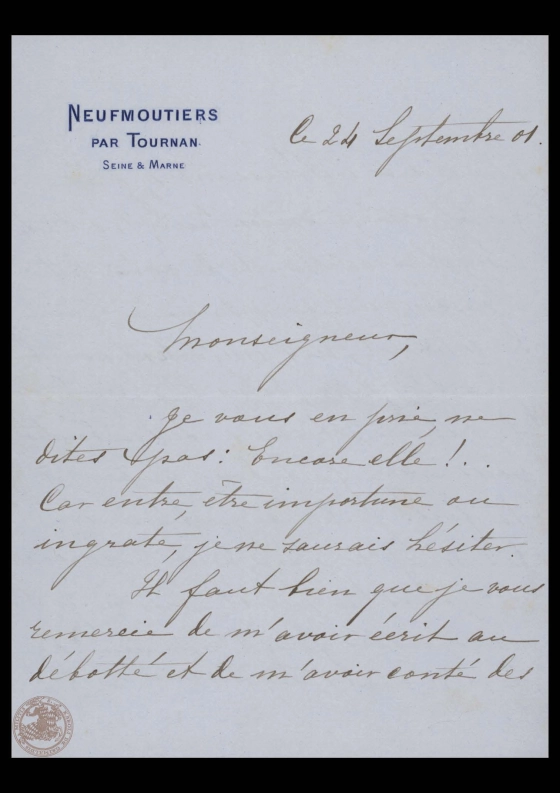 NEUFMOUTIERS
PAR TOURNAN.
SEINE & MARNE
Ce 24 Septembre 01.
Monseigneur,
Je vous en prie, ne
dites pas: Encore elle!..
Car entre, être importune ou
ingrate, je ne saurais hésiter.
Il faut bien que je vous
remercie de m'avoir écrit au
débotté et de m'avoir conté des